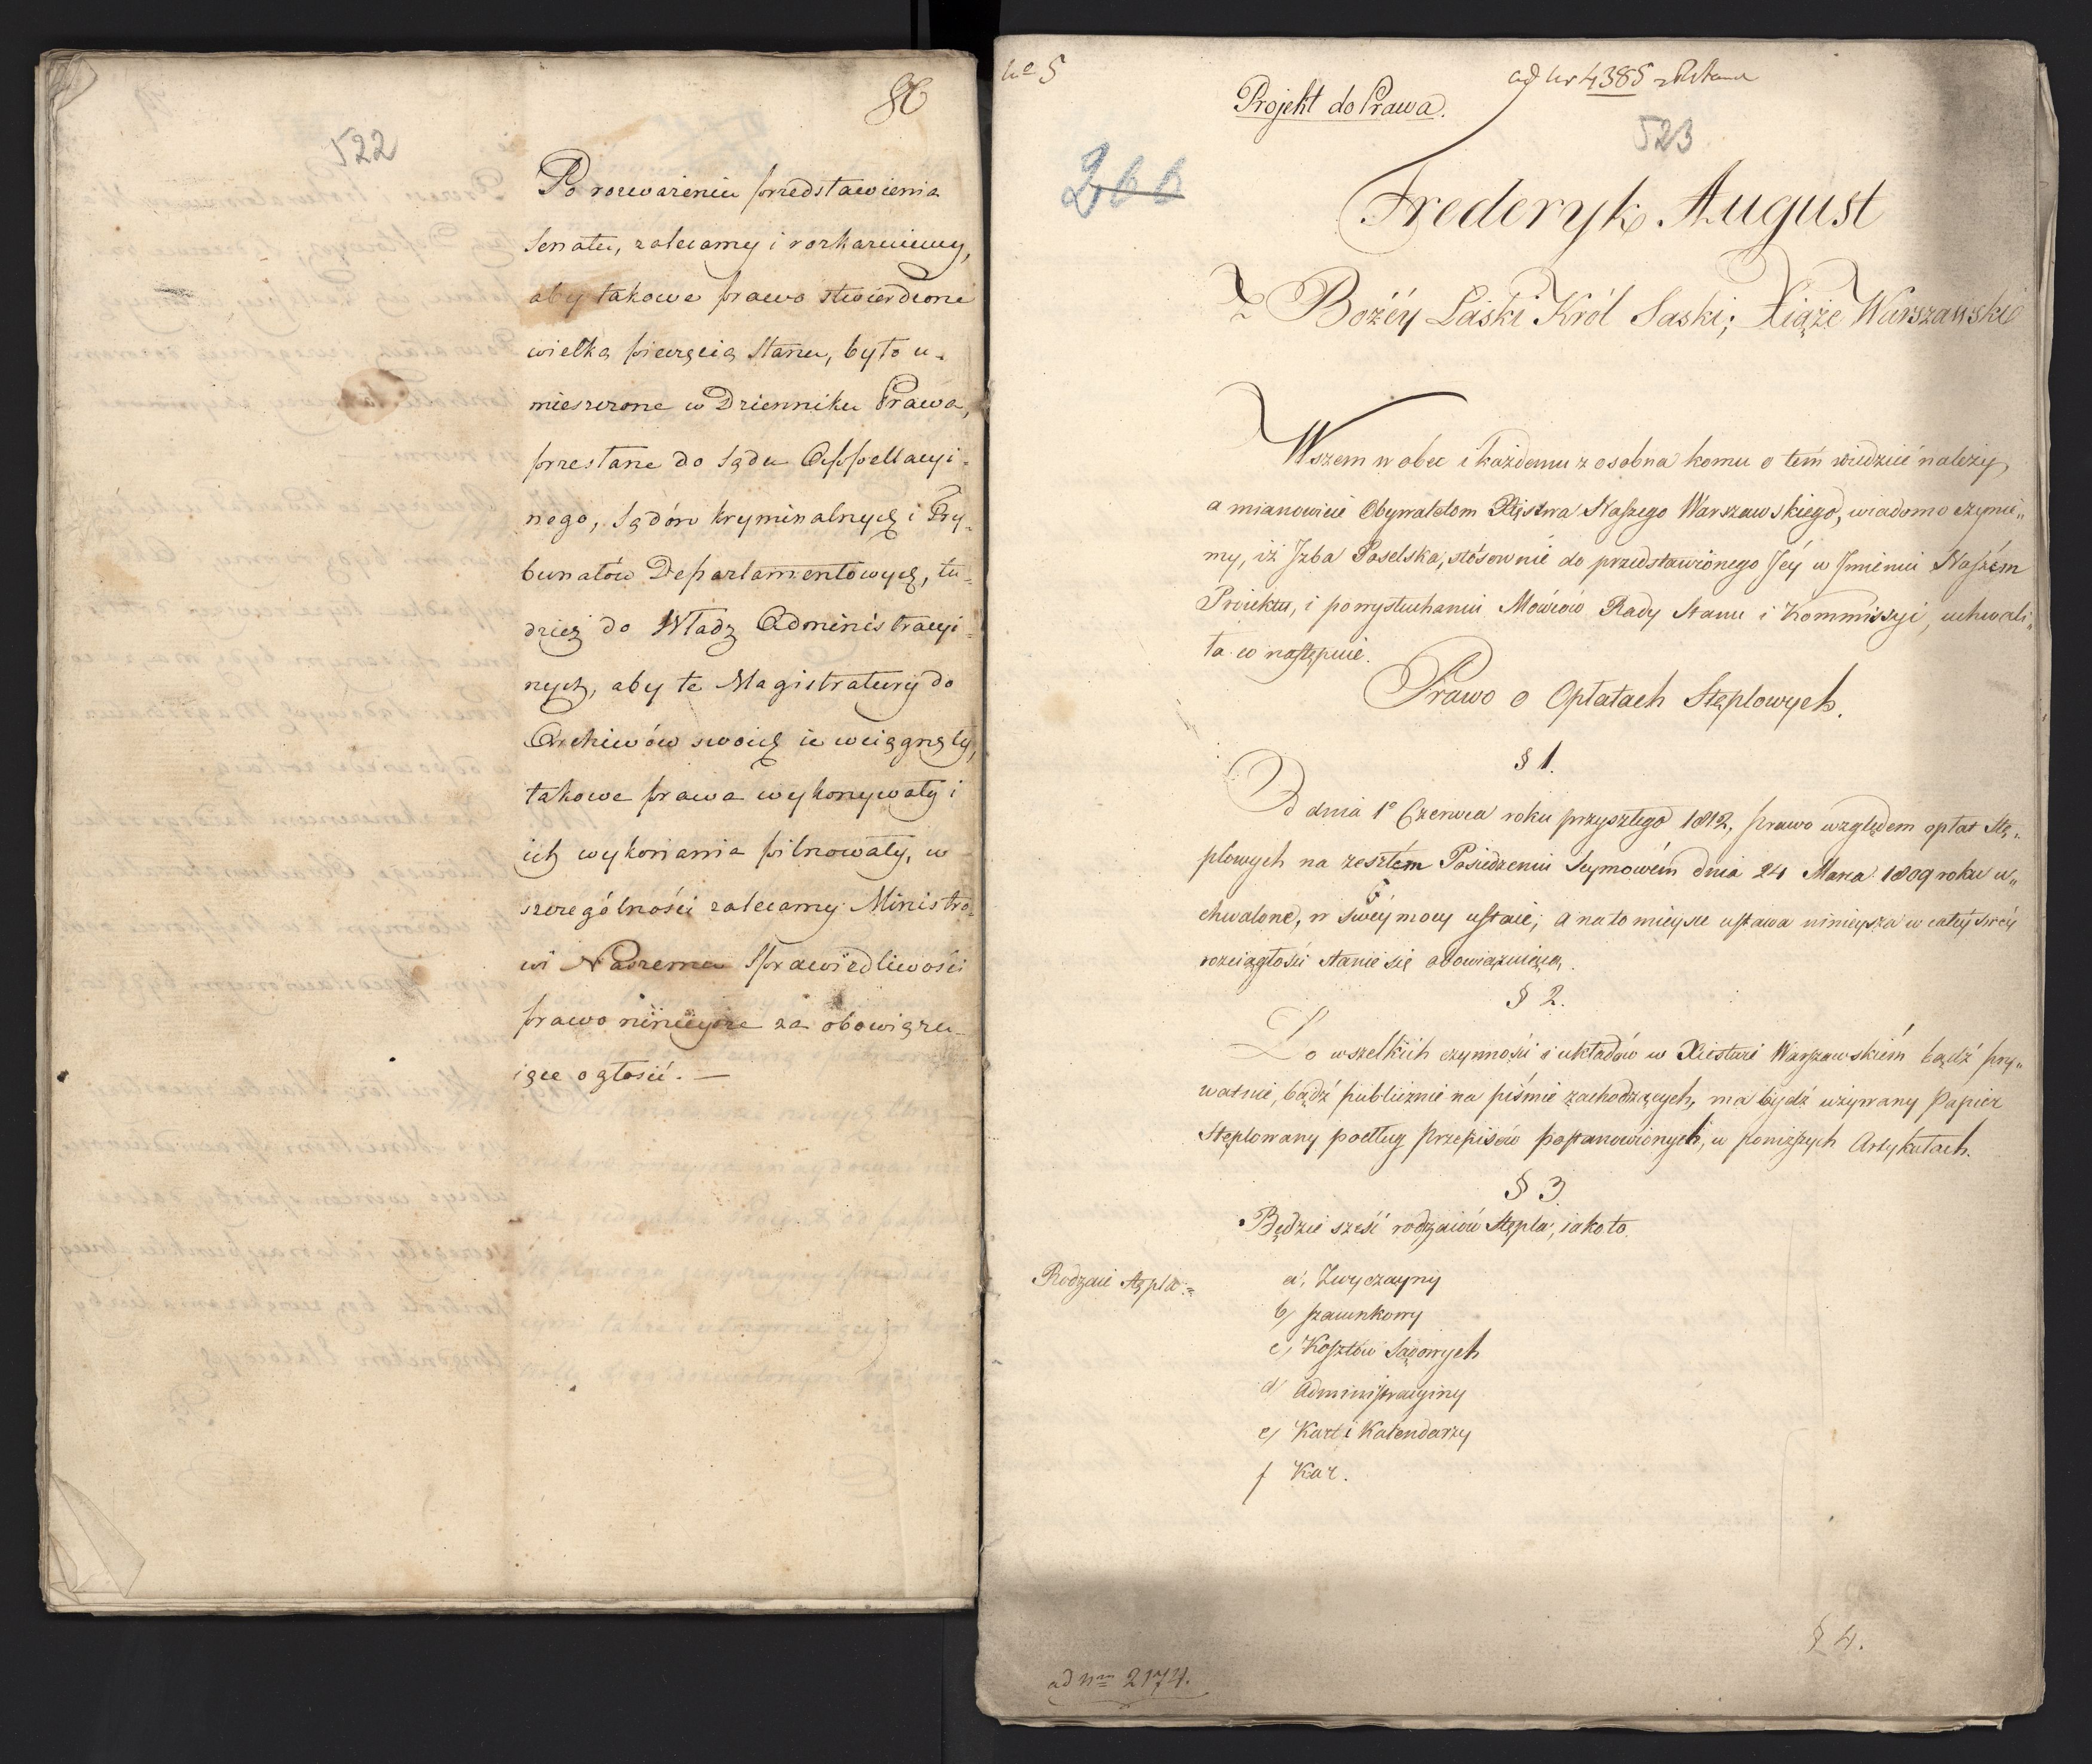 86
522
Po rozważeniu przedstawienia
Senatu, zalecamy i rozkazuiemy,
aby takowe prawo stwierdzone
wielką pieczęcią Stanu, było u-
mieszczone w Dzienniku Prawa,
przesłane do Sądu Appellacyi-
nego, Sądów kryminalnych i Try-
bunałów Departamentowych, tu-
dzież do Władz Administracyi-
nych, aby te Magistratury do
Archiwów swoich ie wciągnęły,
takowe prawa wykonywały i
ich wykonania pilnowały, w
szczególności zalecamy Ministro-
wi Naszemu Sprawiedliwości
prawo ninieysze za obowiązu-
iące ogłosić. —
No 5
ad Nr 4385
Projekt do Prawa.
523
266
Frederyk August
Z Bożéy Łaski Król Saski; Xiąże Warszawski
Wszem w obec i każdemu z osobna komu o tém wiedzieć należy,
a mianowicie Obywatelom Xięstwa Naszego Warszawskiego, wiadomo czynie„
my, iż Izba Poselska, stósownie do przedstawionego Jéy w Imieniu Naszém
Proiektu, i po wysłuchaniu Mówców Rady Stanu i Kommissyi, uchwali„
ła co następuie.
Prawo o Opłatach Stęplowych.
§ 1.
Od dnia 1o Czerwca roku przyszłego 1812, prawo względem opłat Stę„
plowych na zeszłém Posiedzeniu Seymowém dnia 24 Marca 1809 roku u„
chwalone, w swéy mocy ustaie; a na to mieysce ustawa ninieysza w całéy swéy
rozciągłości stanie się obowiązuiącą.
§ 2.
Do wszelkich czynności i układów w Xięstwie Warszawskiém bądź pry„
watnie, bądź publicznie na piśmie zachodzących, ma bydź używany Papier
Stęplowany podług Przepisów postanowionych, w poniższych Artykułach.
§ 3
Będzie sześć rodzaiów Stępla; iako to.
Rodzaie Stępla.=
a, Zwyczayny
b, szacunkowy
c, Kosztów Sądowych
d, Administracyiny
e, Kart i Kalendarzy
f Kar.
§ 4.
ad Nrm 2174.